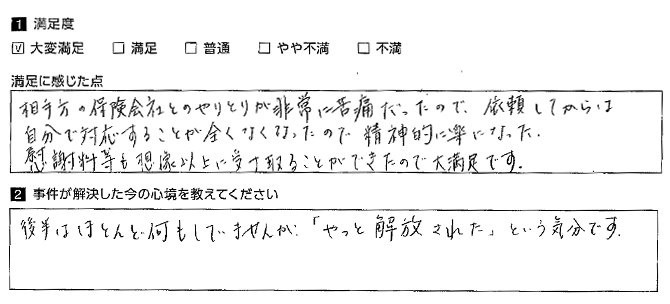 1 満足度
☑ 大変満足 □ 満足 □ 普通 □ やや不満 □ 不満
満足に感じた点
相手方の保険会社とのやりとりが非常に苦痛だったので、依頼してからは
自分で対応することが全くなくなったので精神的に楽になった.
慰謝料等も想像以上に受け取ることができたので大満足です.
2 事件が解決した今の心境を教えてください
後半はほとんど何もしていませんが、「やっと解放された」という気分です.